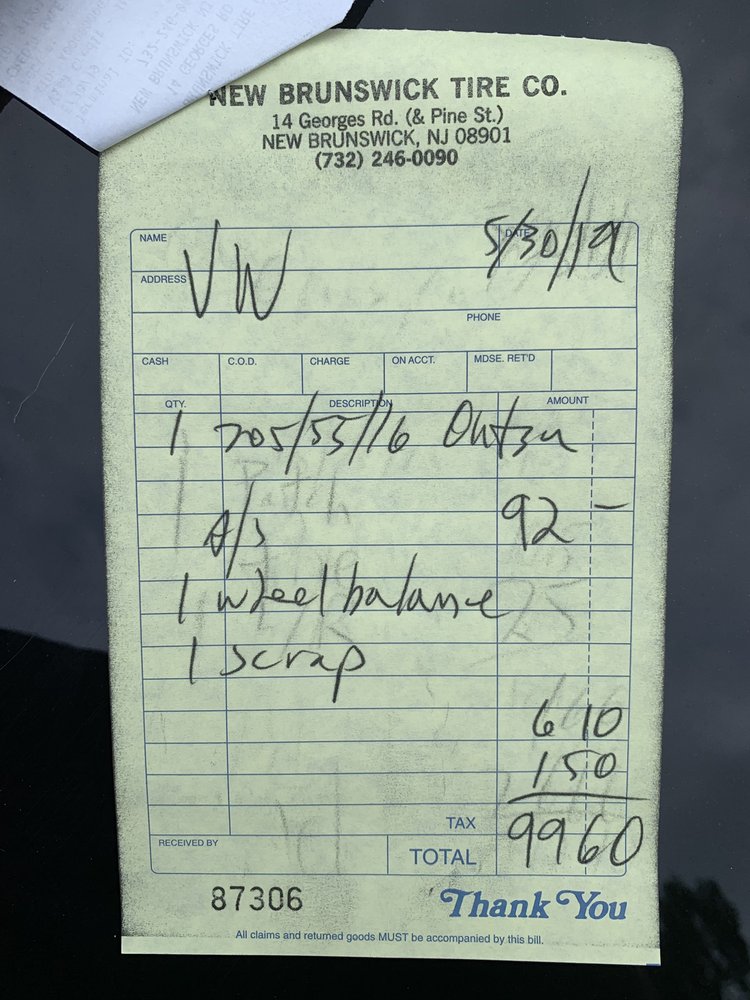 NEW BRUNSWICK TIRE CO.
14 Georges Rd. (& Pine St.)
NEW BRUNSWICK, NJ 08901
(732) 246-0090
NAME VW DATE 5/30/19
ADDRESS
PHONE
CASH C.O.D. CHARGE ON ACCT. MDSE. RET'D
QTY. DESCRIPTION AMOUNT
1 205/55/16
A/S 92 –
1 wheel balance
1 scrap
6 10
1 50
TAX
RECEIVED BY TOTAL 99 60
87306 Thank You
All claims and returned goods MUST be accompanied by this bill.